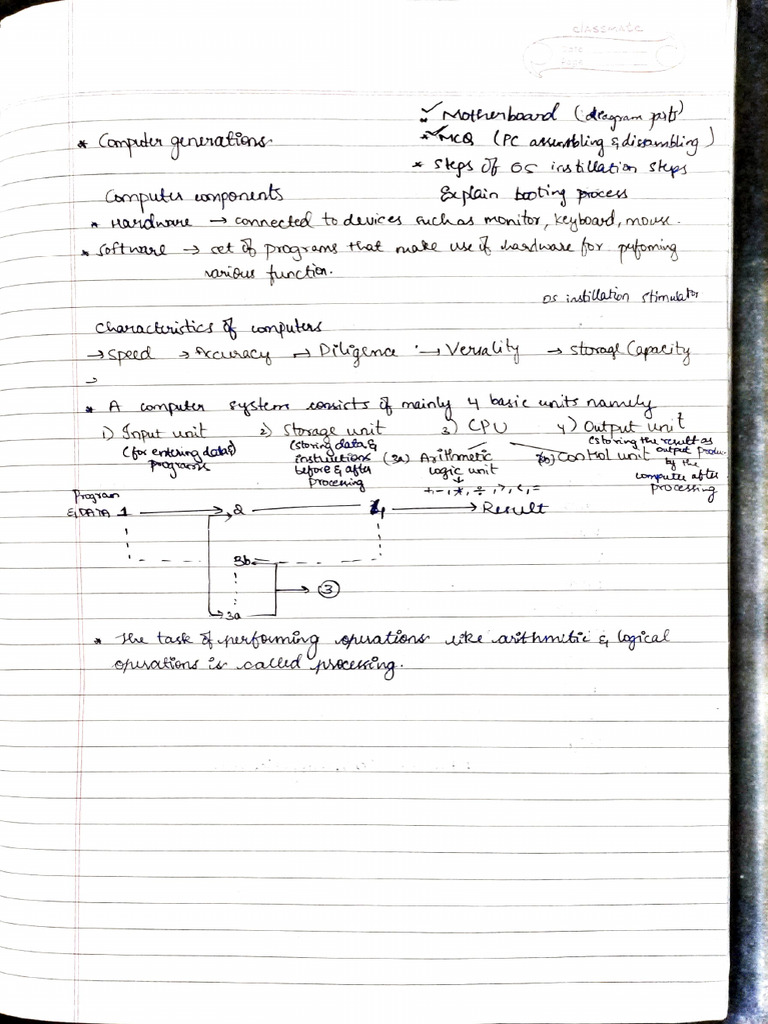 classmate
Date
Page
✓ Motherboard (diagram parts)
* Computer generations
✓ MCQ (PC assembling & dissambling)
* Steps of OS instillation steps
Computer components
Explain booting process
* Hardware → connected to devices such as monitor, keyboard, mouse.
* Software → set of programs that make use of hardware for perfoming
various function.
OS instillation stimulator
Characteristics of computers
→ Speed → Accuracy → Diligence → Versality → Storage Capacity
→
* A computer system consists of mainly 4 basic units namely
1) Input unit 2) Storage unit 3) CPU 4) Output unit
(for entering data &
programs
(storing data &
instructions
before & after
processing
(3a) Arithmetic
logic unit
+, -, *, ÷, >, <, =
(3b) Control unit
(storing the result as
output produ
by the
computer after
processing
Program
& DATA 1 → 2 4 → Result
3b
③
3a
* The task of performing operations like arithmetic & logical
operations is called processing.